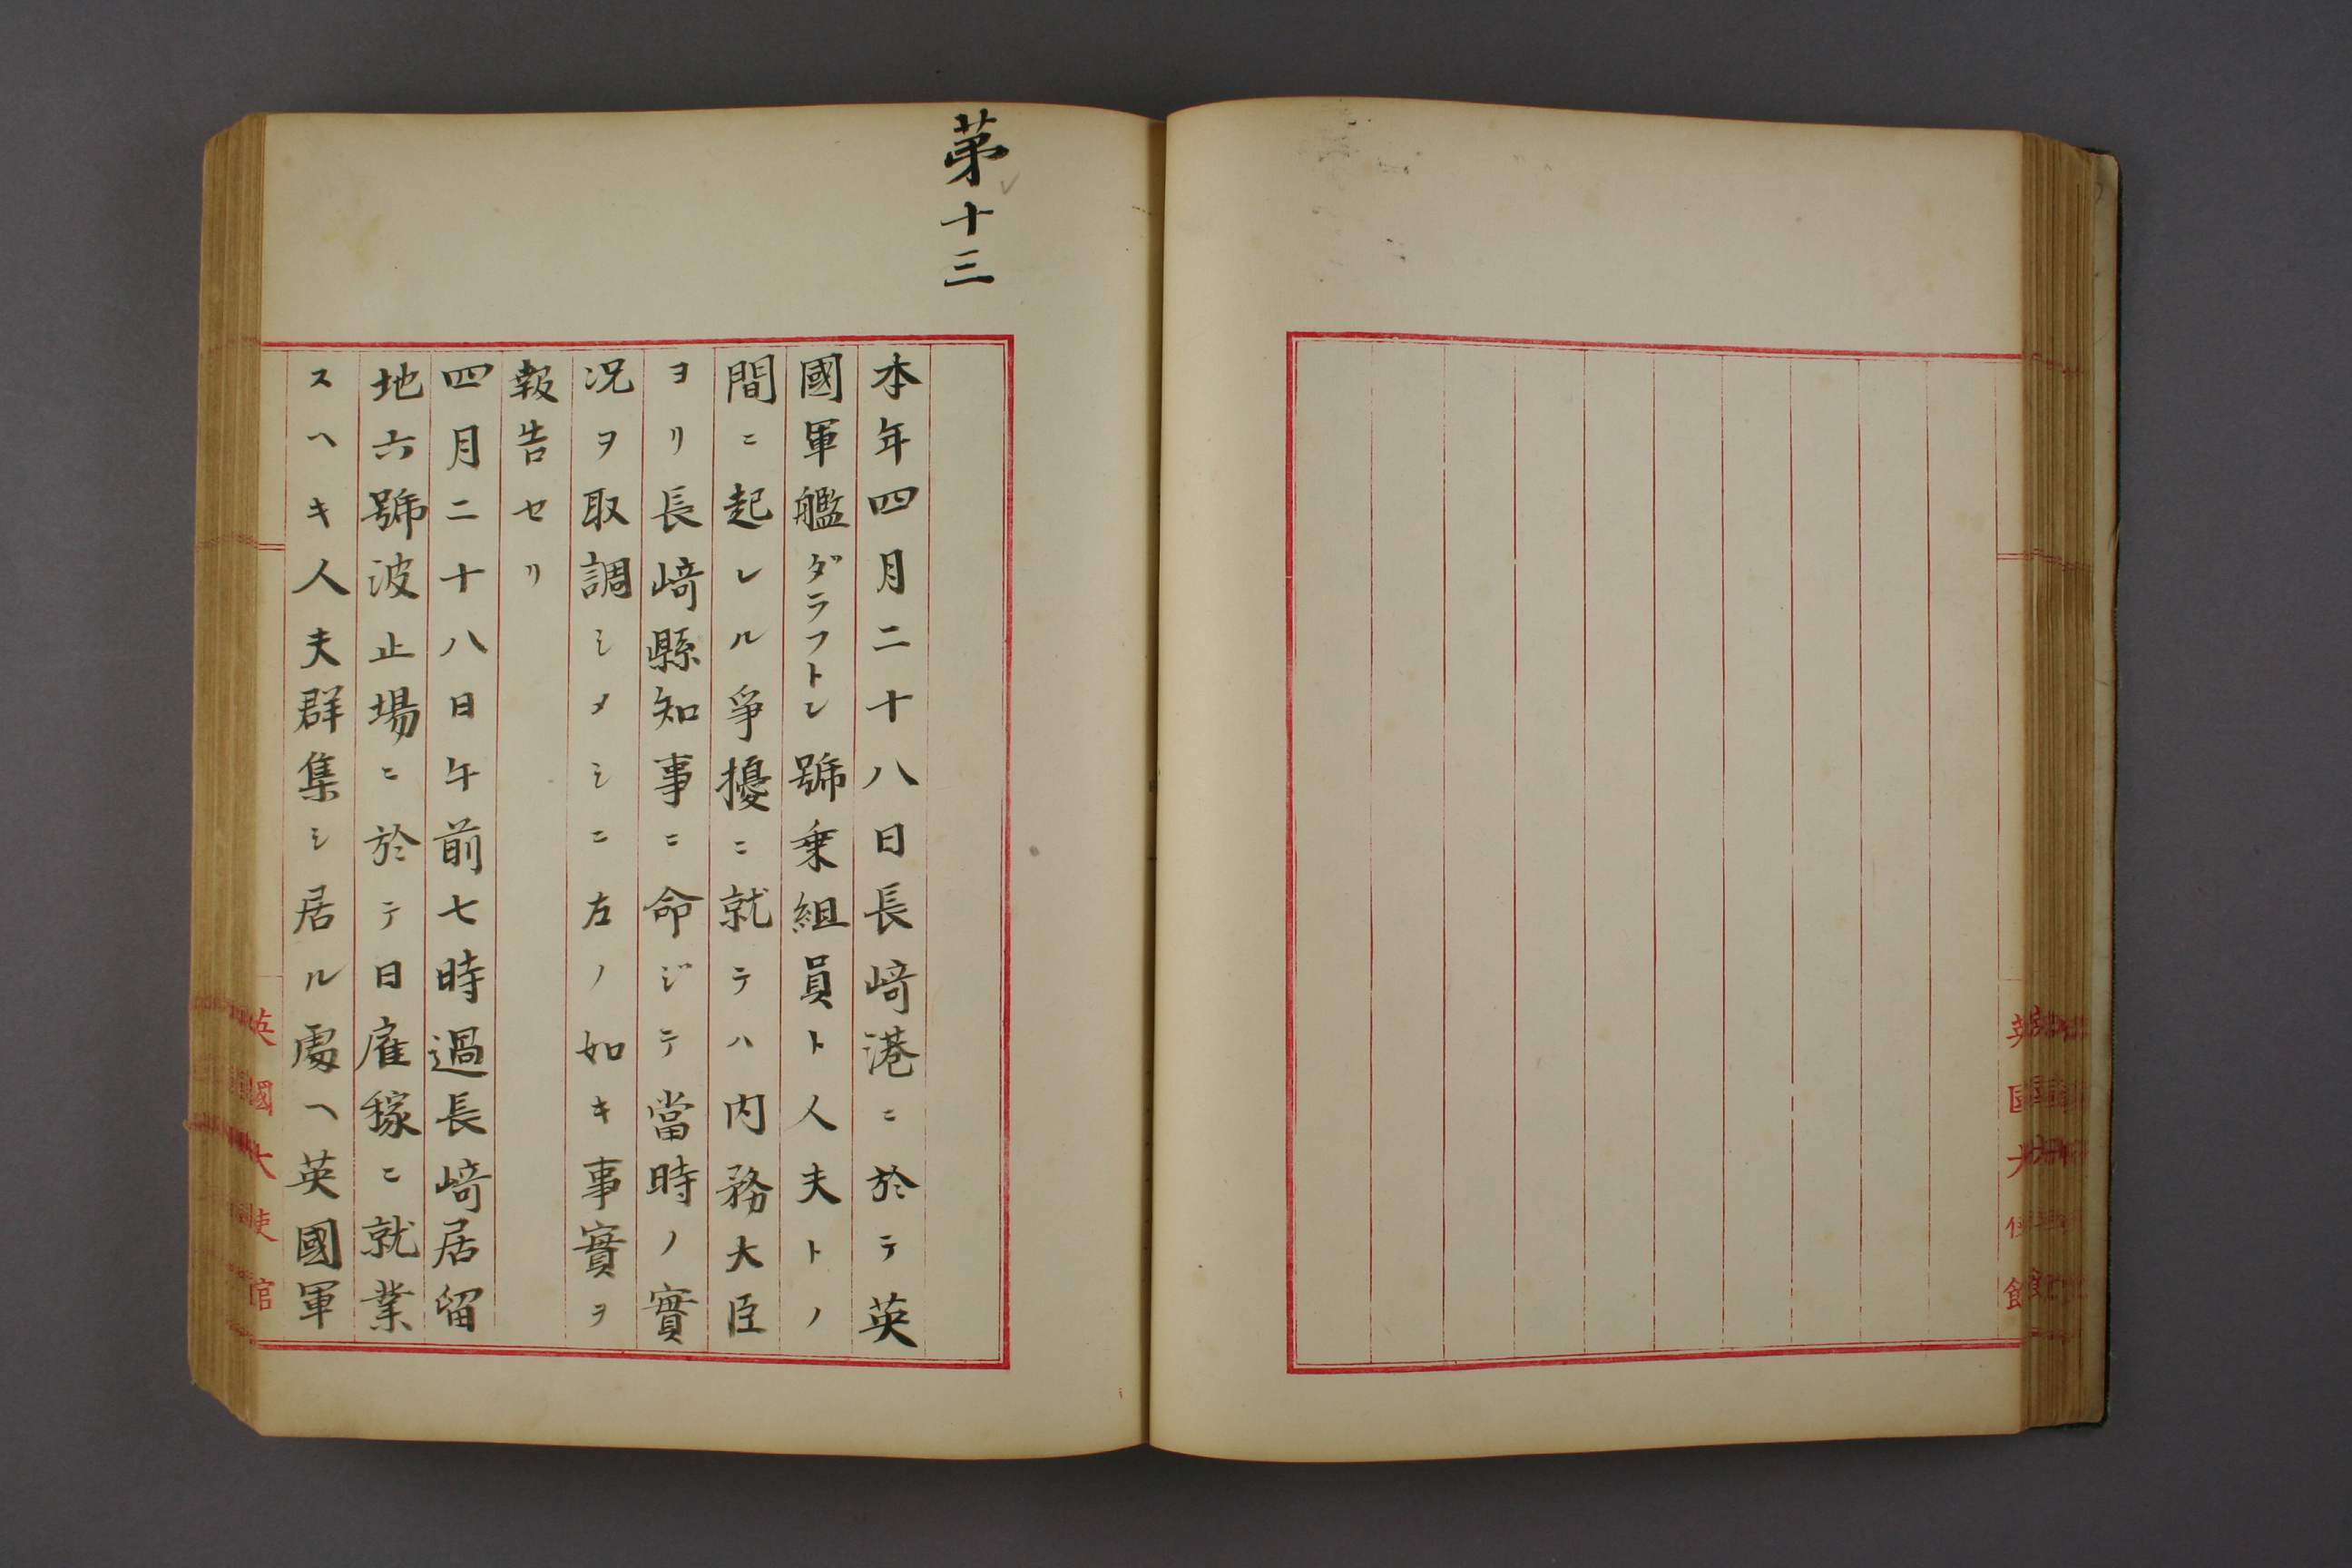 第十三
本年四月二十八日長﨑港ニ於テ英
國軍艦ダラフトン號乗組員ト人夫トノ
間ニ起レル爭擾ニ就テハ内務大臣
ヨリ長﨑縣知事ニ命ジテ當時ノ實
况ヲ取調シメシニ左ノ如キ事實ヲ
報告セリ
四月二十八日午前七時過長﨑居留
地六號波止場ニ於テ日雇稼ニ就業
スヘキ人夫群集シ居ル處ヘ英國軍
英國大使館
英國大使館